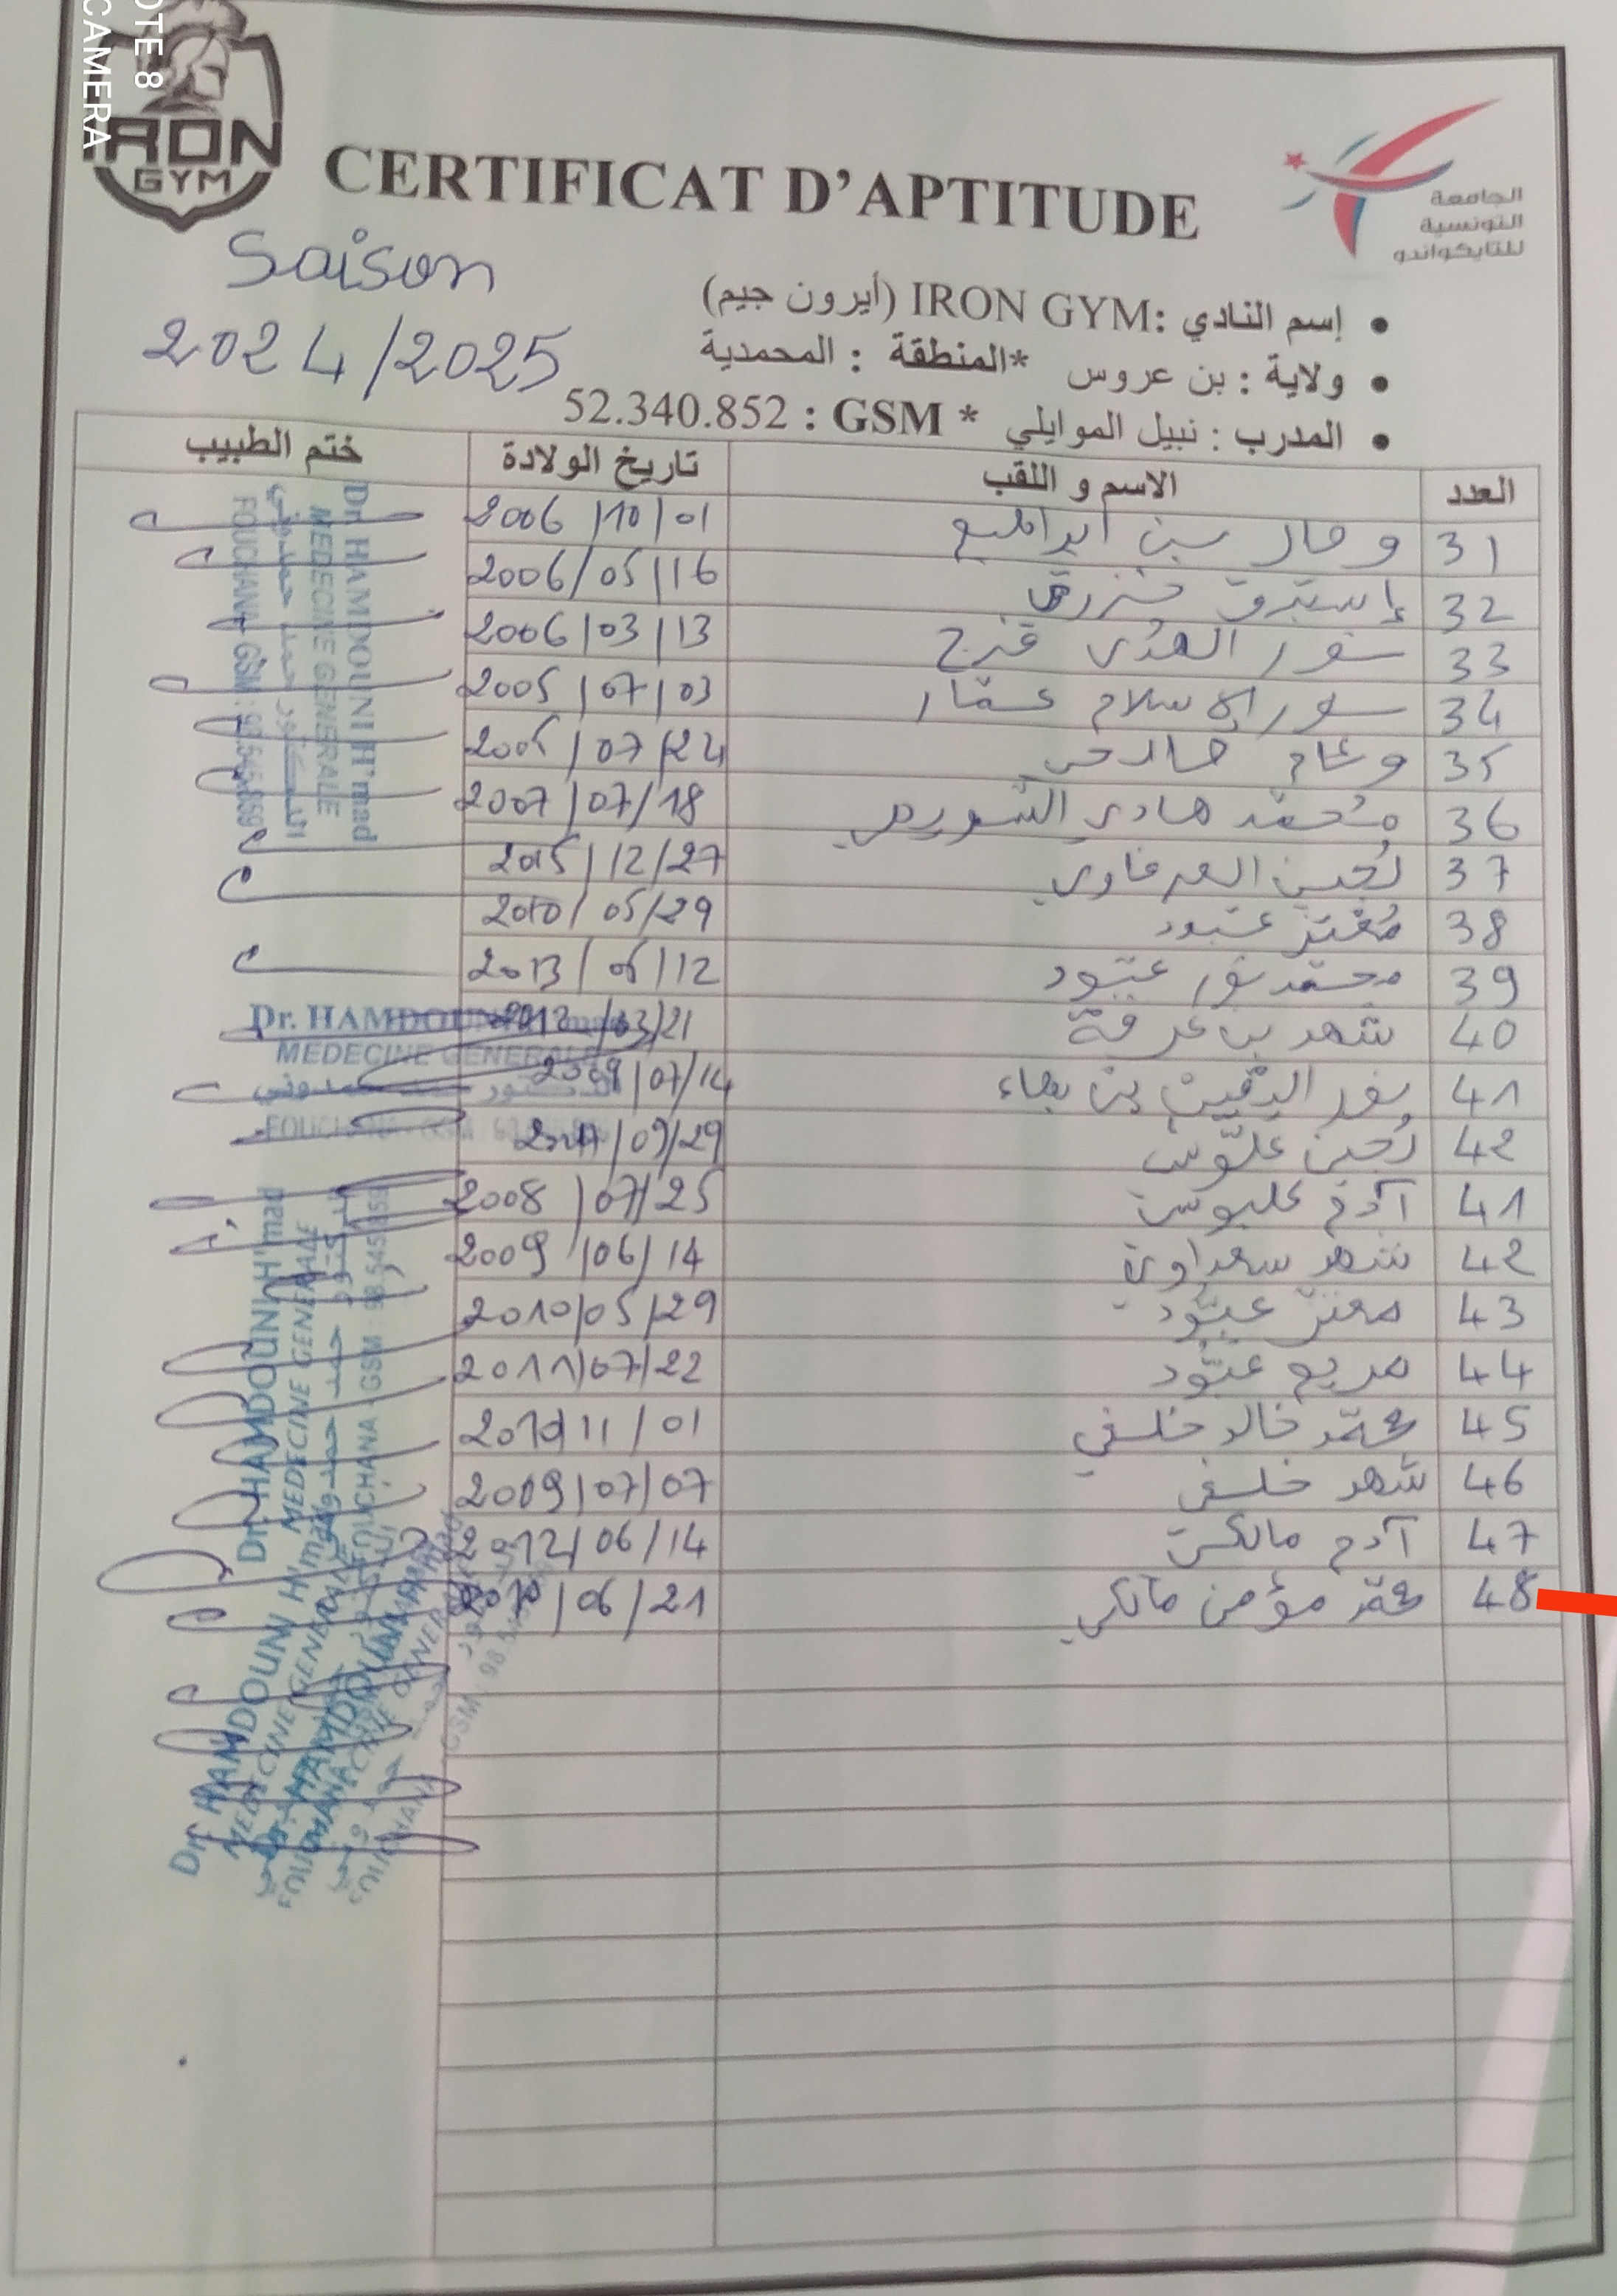 OTE 8
CAMERA
IRON
GYM
CERTIFICAT D'APTITUDE
الجامعة
التونسية
للتايكواندو
Saison
2024/2025
• إسم النادي :IRON GYM (أيرون جيم)
• ولاية : بن عروس *المنطقة : المحمدية
• المدرب : نبيل الموايلي * GSM : 52.340.852
العدد الاسم و اللقب تاريخ الولادة ختم الطبيب
31 بن ابراهيم 2006/10/01
32 2006/05/16
33 نور الهدى فرج 2006/03/13
34 نور الاسلام عمّار 2005/07/03
35 وئام 07/24
36 محمد هادي 2007/07/18
37 لُجين العرفاوي 2015/12/27
38 مُعتز عبّود 2010/05/29
39 محمد نور عبّود 2013/ /12
40 شهد بن عرفة 2012/03/21
41 نور اليقين بن بهاء 2009/07/14
42 لُجين علّوش /09/29
41 آدم 2008/07/25
42 شهد سعداوي 2009/06/14
43 معتز عبّود 2010/05/29
44 مريم عبّود 2011/07/22
45 محمّد خالد خلفي 2010/11/01
46 شهد خلفي 2009/07/07
47 آدم مالكي 2012/06/14
48 محمّد مؤمن مالكي 2010/06/21
Dr. HAMDOUNI H'mad
MEDECINE GENERALE
FOUCHANA - GSM : 98.545.859
Dr. HAMDOUNI H'mad
MEDECINE GENERALE
FOUCHANA - GSM
Dr. HAMDOUNI H'mad
MEDECINE GENERALE
FOUCHANA - GSM : 98.545.859
Dr. HAMDOUNI H'mad
MEDECINE GENERALE